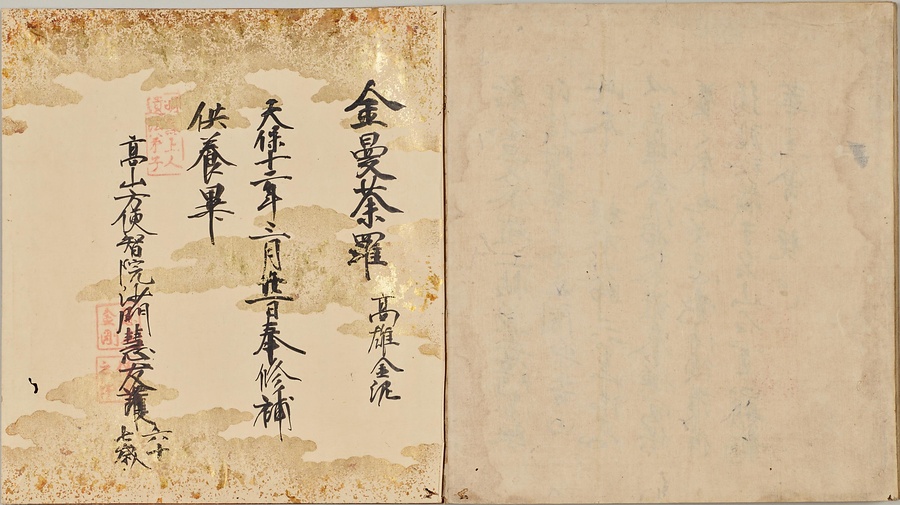 金曼荼羅 高雄金泥
天保十二年三月廿一日奉修補
供養畢
高山方便智院沙門慧友護 六十七歳
上人
金剛